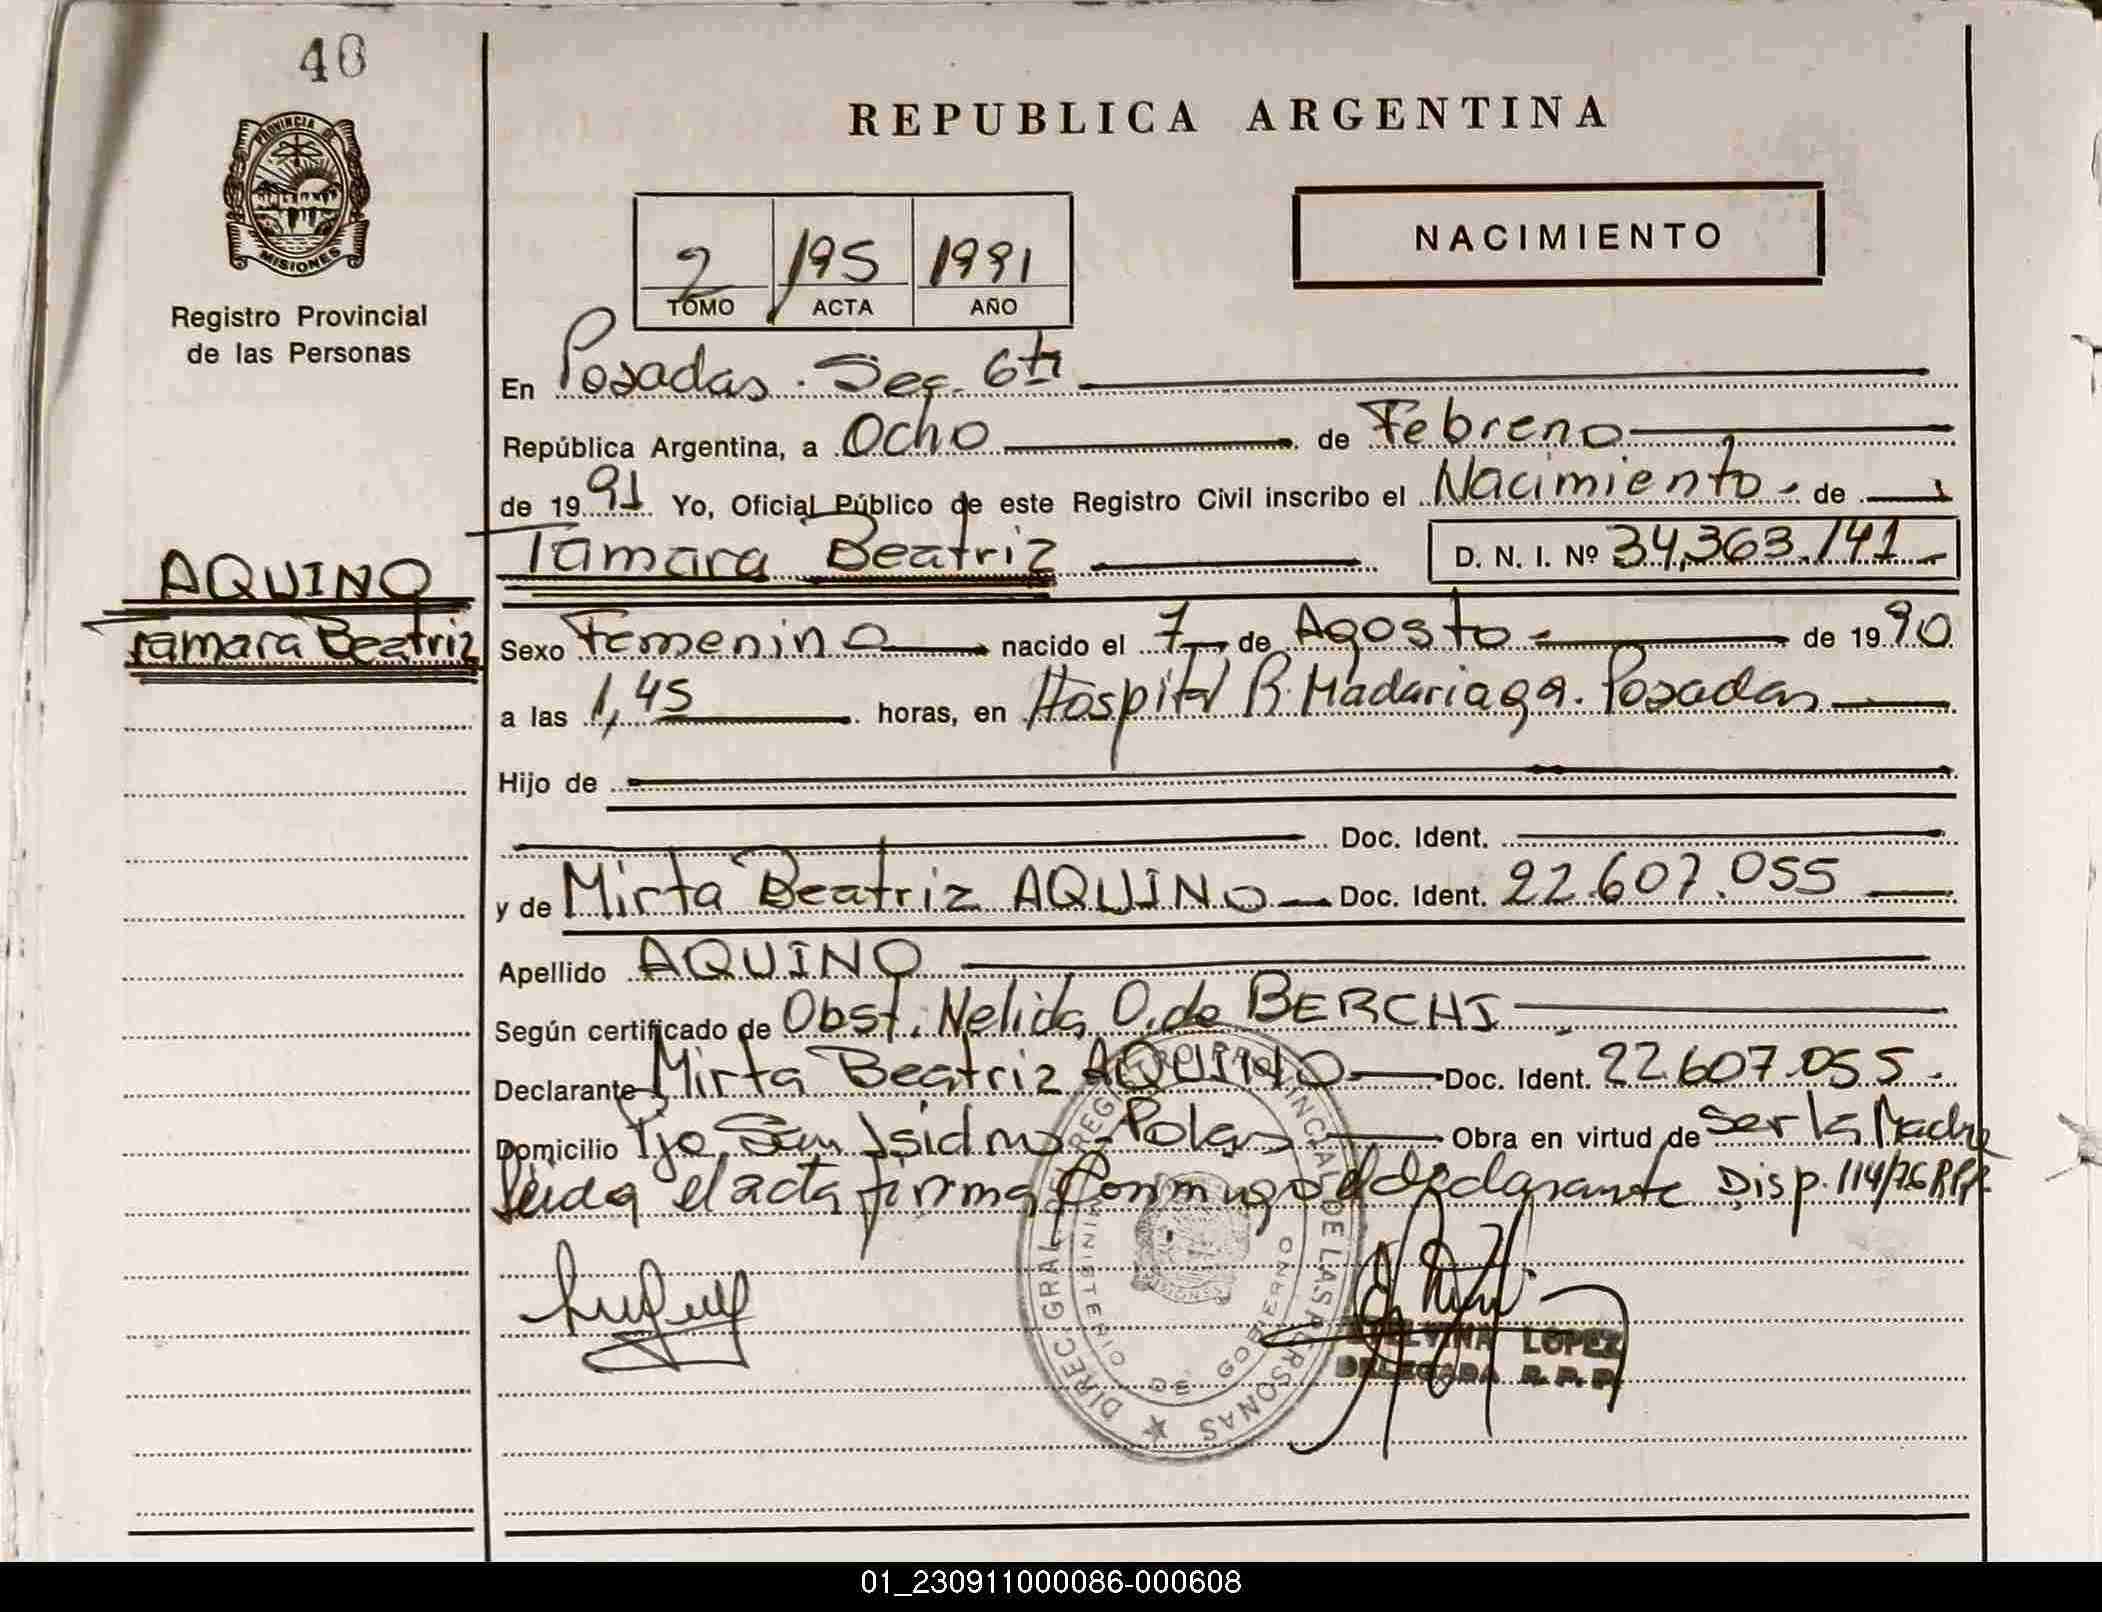 40
PROVINCIA DE
MISIONES
Registro Provincial
de las Personas
REPUBLICA ARGENTINA
2 195 1991
TOMO ACTA AÑO
NACIMIENTO
En Posadas. Sec. 6ta
República Argentina, a Ocho de Febrero
de 1991 Yo, Oficial Público de este Registro Civil inscribo el Nacimiento - de
Tamara Beatriz D. N. I. Nº 34.363.141
AQUINO
Tamara Beatriz
Sexo Femenino nacido el 7 de Agosto de 1990
a las 1,45 horas, en Hospital R. Madariaga. Posadas
Hijo de
Doc. Ident.
y de Mirta Beatriz AQUINO Doc. Ident. 22.607.055
Apellido AQUINO
Según certificado de Obst. Nelida O. de BERCHI
Declarante Mirta Beatriz AQUINO Doc. Ident. 22.607.055.
Domicilio San Isidro - Obra en virtud de Ser la Madre
Leida el acta firma Conmigo el declarante Disp. 114/76 RPP.
DIREC GRAL REG PROVINCIAL DE LAS PERSONAS
MINISTERIO DE GOBIERNO
MISIONES
LOPEZ
DELEGADA R. P. P.
01_230911000086-000608